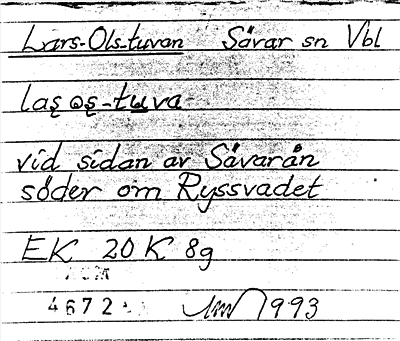 Lars-Ols-tuvan Sävar sn Vbl
laʂ ɷʂ-tuva
vid sidan av Sävarån
söder om Ryssvadet
EK 20 K 8g
4672
1993